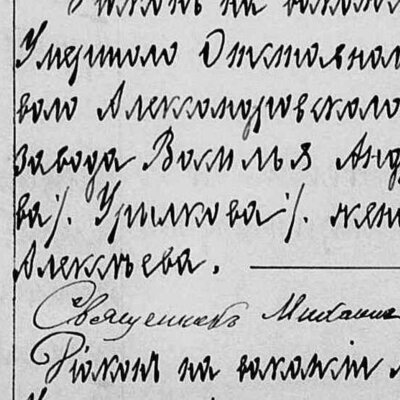 Діаконъ на вакан
Умершаго Отставнаг
ваго Александровскаго
завода Василья Анд
ва /. Урилкова /. жен
Алексѣева.
Священникъ Михаил
Діаконъ на вакансіи